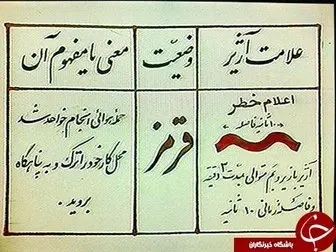 علامت آژیر
وضعیّت
معنی یا مفهوم آن
اعلام خطر
۱۰ ثانیه فاصله
آژیر با زیر و بم متوالی بمدت ۳ دقیقه
و فاصله زمانی ۱۰ ثانیه
قرمز
حمله هوائی انجام خواهد شد
محل کار خود را ترک و به پناهگاه
بروید.
باشگاه خبرنگاران